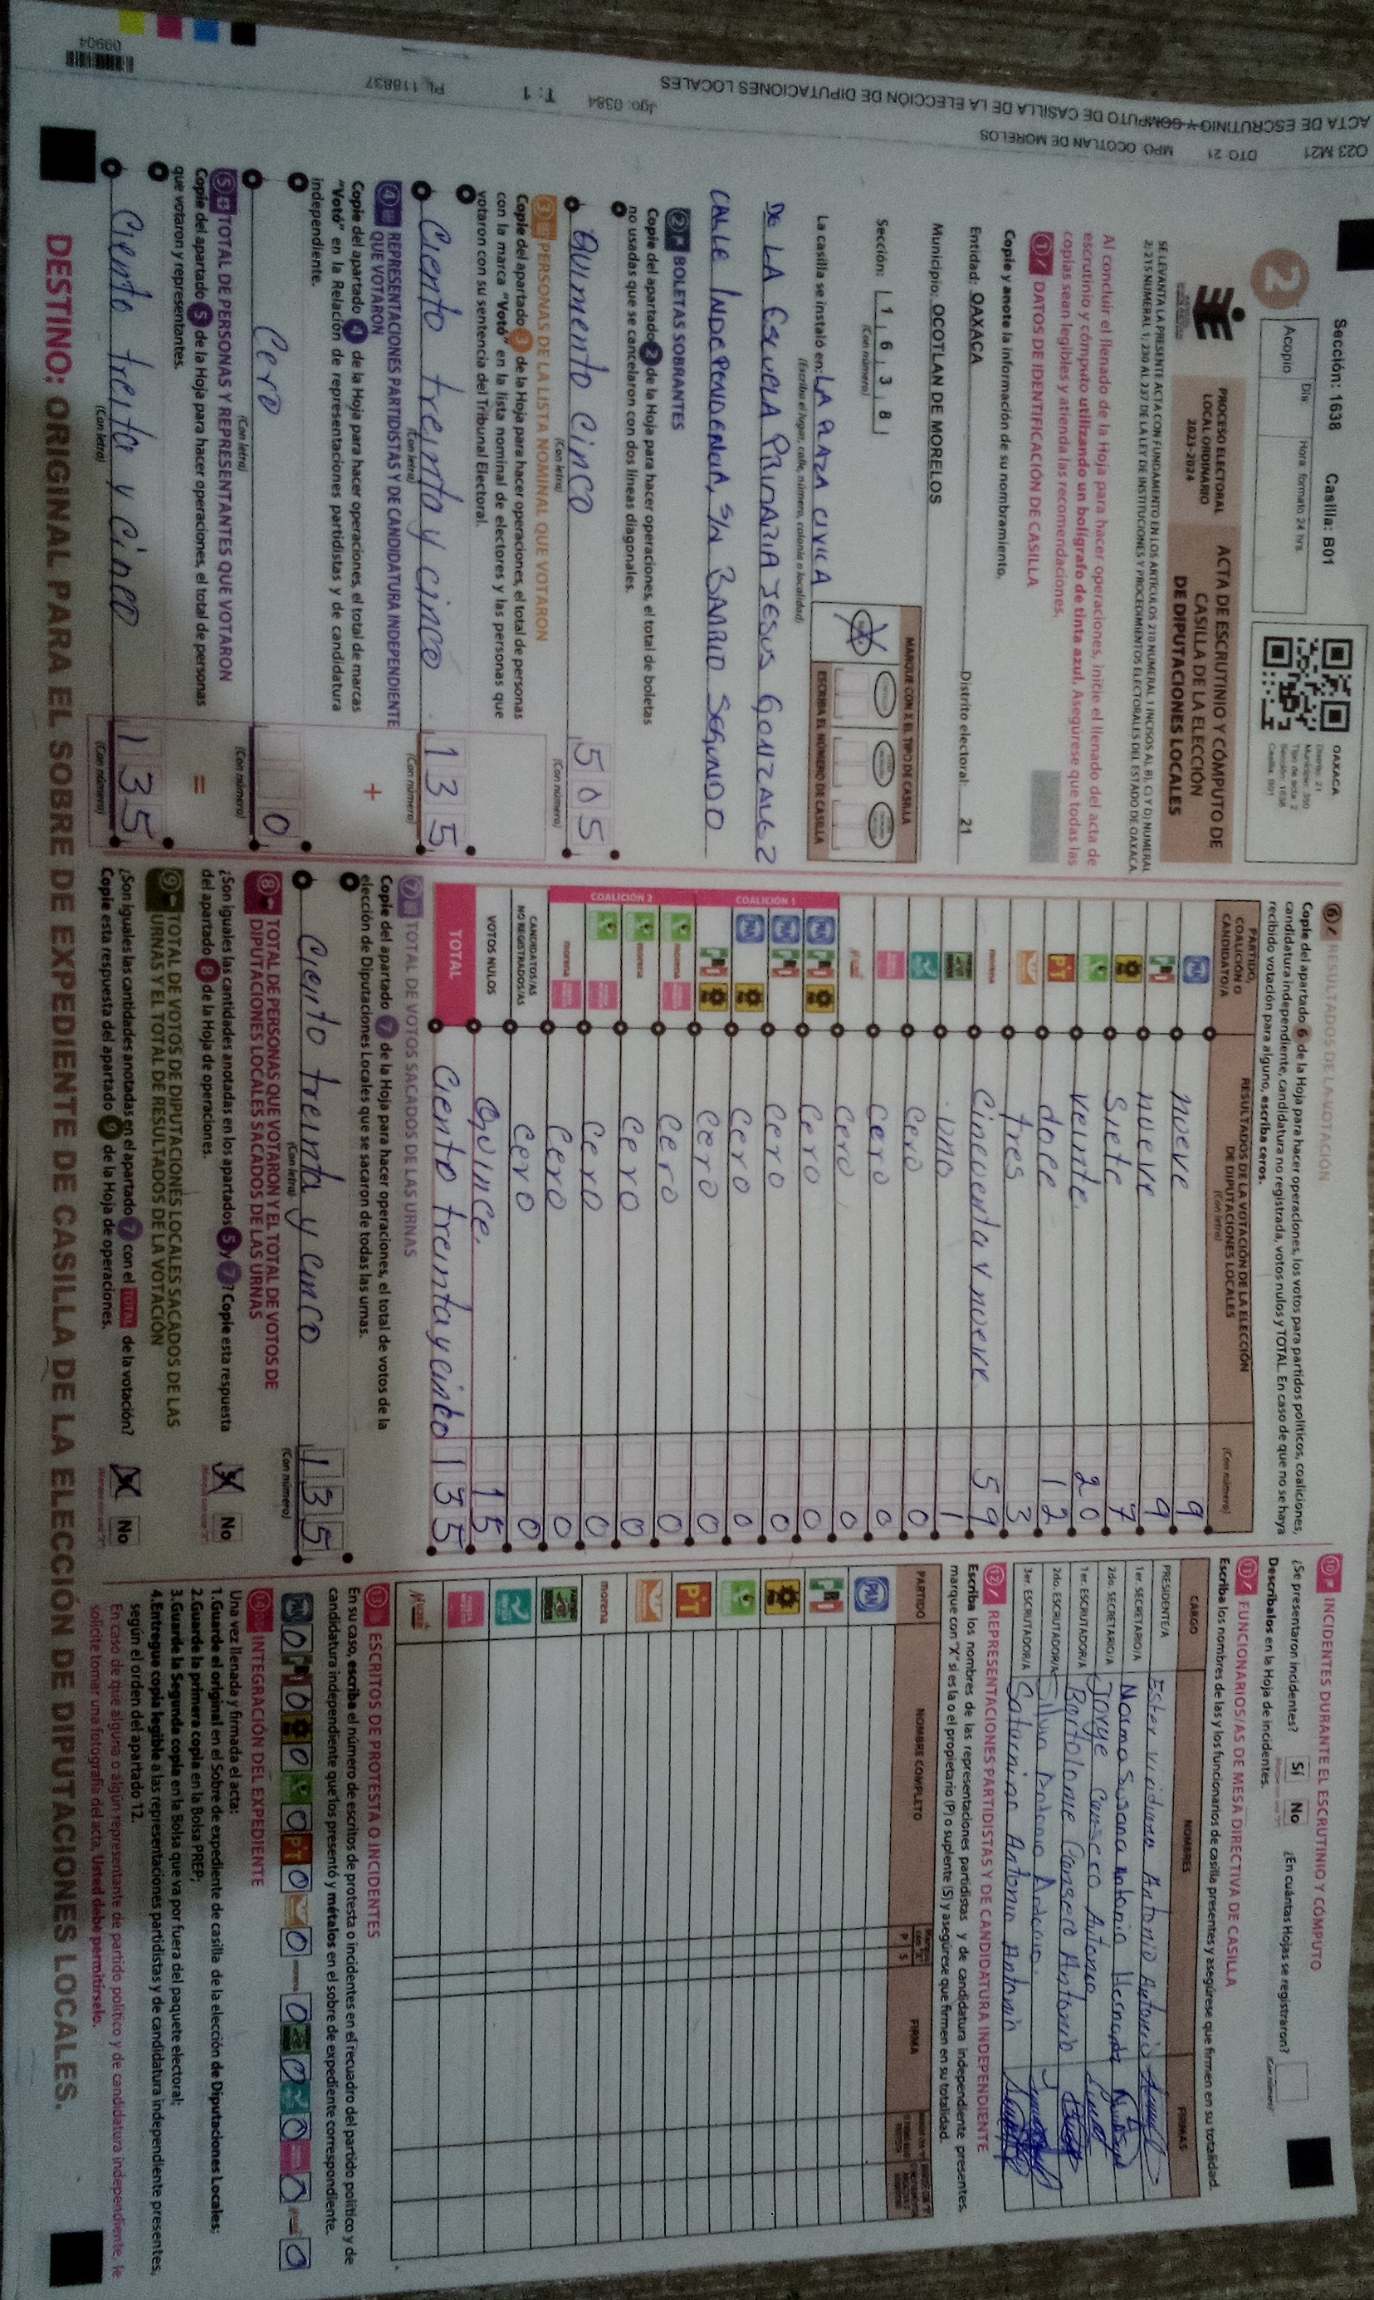 Sección: 1638 Casilla: B01
Día: Hora: formato 24 hrs.
2 Acopio
OAXACA
PROCESO ELECTORAL
LOCAL ORDINARIO
2023-2024
ACTA DE ESCRUTINIO Y CÓMPUTO DE
CASILLA DE LA ELECCIÓN
DE DIPUTACIONES LOCALES
Al concluir el llenado de la Hoja para hacer operaciones, inicie el llenado del acta de
escrutinio y cómputo utilizando un bolígrafo de tinta azul. Asegúrese que todas las
copias sean legibles y atienda las recomendaciones.
1 DATOS DE IDENTIFICACIÓN DE CASILLA
Copie y anote la información de su nombramiento.
Entidad: OAXACA Distrito electoral: 21
Municipio: OCOTLAN DE MORELOS
Sección: 1 6 3 8
(Con número)
MARQUE CON X EL TIPO DE CASILLA
ESCRIBA EL NÚMERO DE CASILLA
La casilla se instaló en: LA PLAZA CIVICA
(Escriba el lugar, calle, número, colonia o localidad)
DE LA ESCUELA PRIMARIA JESUS GONZALEZ
CALLE INDEPENDENCIA, S/N BARRIO SEGUNDO
2 BOLETAS SOBRANTES
Copie del apartado 2 de la Hoja para hacer operaciones, el total de boletas
no usadas que se cancelaron con dos líneas diagonales.
Quiniento cinco 505
(Con letra) (Con número)
3 PERSONAS DE LA LISTA NOMINAL QUE VOTARON
Copie del apartado 3 de la Hoja para hacer operaciones, el total de personas
con la marca "Votó" en la lista nominal de electores y las personas que
votaron con su sentencia del Tribunal Electoral.
Ciento treinta y cinco 135
(Con letra) (Con número)
4 REPRESENTACIONES PARTIDISTAS Y DE CANDIDATURA INDEPENDIENTE
QUE VOTARON
+
Copie del apartado 4 de la Hoja para hacer operaciones, el total de marcas
"Votó" en la Relación de representaciones partidistas y de candidatura
independiente.
Cero 0
(Con letra) (Con número)
5 TOTAL DE PERSONAS Y REPRESENTANTES QUE VOTARON
=
Copie del apartado 5 de la Hoja para hacer operaciones, el total de personas
que votaron y representantes.
Ciento treinta y cinco 135
(Con letra) (Con número)
6 RESULTADOS DE LA VOTACIÓN
Copie del apartado 6 de la Hoja para hacer operaciones, los votos para partidos políticos, coaliciones,
candidatura independiente, candidatura no registrada, votos nulos y TOTAL. En caso de que no se haya
recibido votación para alguno, escriba ceros.
PARTIDO, COALICIÓN O CANDIDATO/A
RESULTADOS DE LA VOTACIÓN DE LA ELECCIÓN
DE DIPUTACIONES LOCALES
(Con letra) (Con número)
PAN nueve 9
PRI nueve 9
siete 7
veinte 20
PT doce 12
tres 3
morena Cincuenta y nueve 59
uno 1
cero 0
cero 0
cero 0
COALICIÓN 1
cero 0
cero 0
cero 0
cero 0
COALICIÓN 2
cero 0
cero 0
cero 0
cero 0
CANDIDATOS/AS
NO REGISTRADOS/AS cero 0
VOTOS NULOS Quince 15
TOTAL Ciento treinta y cinco 135
7 TOTAL DE VOTOS SACADOS DE LAS URNAS
Copie del apartado 7 de la Hoja para hacer operaciones, el total de votos de la
elección de Diputaciones Locales que se sacaron de todas las urnas.
Ciento treinta y cinco 135
(Con letra) (Con número)
8 TOTAL DE PERSONAS QUE VOTARON Y EL TOTAL DE VOTOS DE
DIPUTACIONES LOCALES SACADOS DE LAS URNAS
¿Son iguales las cantidades anotadas en los apartados 5 y 7? Copie esta respuesta
del apartado 8 de la Hoja de operaciones.
No
9 TOTAL DE VOTOS DE DIPUTACIONES LOCALES SACADOS DE LAS
URNAS Y EL TOTAL DE RESULTADOS DE LA VOTACIÓN
¿Son iguales las cantidades anotadas en el apartado 7 con el TOTAL de la votación?
Copie esta respuesta del apartado 9 de la Hoja de operaciones.
No
10 INCIDENTES DURANTE EL ESCRUTINIO Y CÓMPUTO
¿Se presentaron incidentes? Sí No ¿En cuántas Hojas se registraron?
Descríbalos en la Hoja de incidentes.
11 FUNCIONARIOS/AS DE MESA DIRECTIVA DE CASILLA
Escriba los nombres de las y los funcionarios de casilla presentes y asegúrese que firmen en su totalidad.
CARGO NOMBRES FIRMAS
PRESIDENTE/A Ester Viridiana Antonio Antonio
1er. SECRETARIO/A Norma Susana Antonio
2do. SECRETARIO/A Jorge Antonio
1er. ESCRUTADOR/A Bartolome Antonio
2do. ESCRUTADOR/A Silvia Antonio
3er. ESCRUTADOR/A Saturnino Antonio Antonio
12 REPRESENTACIONES PARTIDISTAS Y DE CANDIDATURA INDEPENDIENTE
Escriba los nombres de las representaciones partidistas y de candidatura independiente presentes,
marque con "X" si es la o el propietario (P) o suplente (S) y asegúrese que firmen en su totalidad.
PARTIDO NOMBRE COMPLETO P S FIRMA
PAN
PRI
PT
morena
13 ESCRITOS DE PROTESTA O INCIDENTES
En su caso, escriba el número de escritos de protesta o incidentes en el recuadro del partido político y de
candidatura independiente que los presentó y métalos en el sobre de expediente correspondiente.
PAN 0 PRI 0 0 0 PT 0 0 0 0 0 0 0
14 INTEGRACIÓN DEL EXPEDIENTE
Una vez llenada y firmada el acta:
1. Guarde el original en el Sobre de expediente de casilla de la elección de Diputaciones Locales;
2. Guarde la primera copia en la Bolsa PREP;
3. Guarde la Segunda copia en la Bolsa que va por fuera del paquete electoral;
4. Entregue copia legible a las representaciones partidistas y de candidatura independiente presentes,
según el orden del apartado 12.
En caso de que alguna o algún representante de partido político y de candidatura independiente, le
solicite tomar una fotografía del acta, Usted debe permitírselo.
DESTINO: ORIGINAL PARA EL SOBRE DE EXPEDIENTE DE CASILLA DE LA ELECCIÓN DE DIPUTACIONES LOCALES.
O23 M21 DTO 21 MPO. OCOTLAN DE MORELOS
ACTA DE ESCRUTINIO Y COMPUTO DE CASILLA DE LA ELECCIÓN DE DIPUTACIONES LOCALES
Jgo: 0384 T: 1 PL 118837
09904